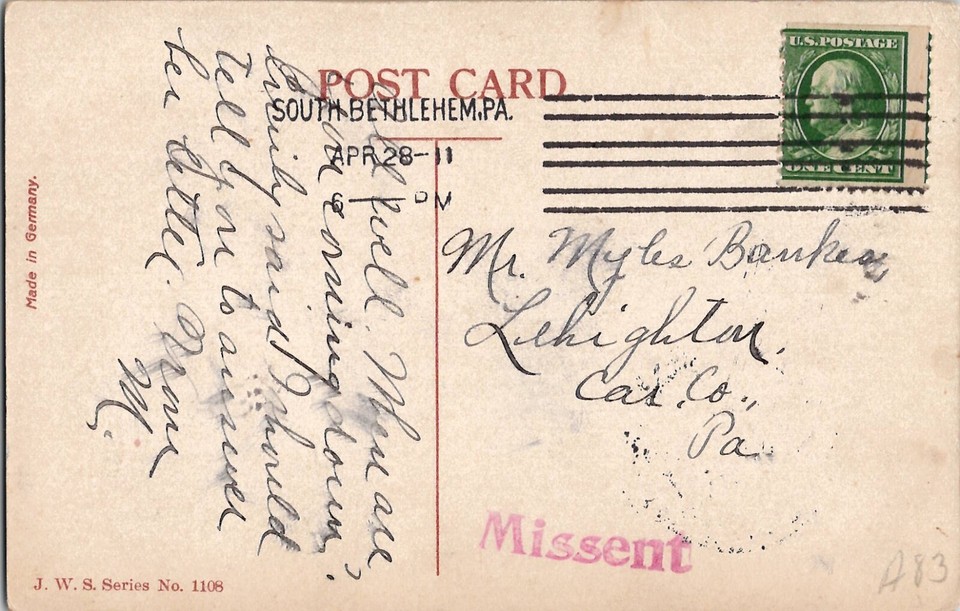 POST CARD
SOUTH BETHLEHEM, PA.
APR 28-11
6 PM
U.S. POSTAGE
ONE CENT
Made in Germany.
All well. When are
you coming down,
Emily said I should
tell you to answer
her letter.
M.
Mr. Myles
Lehighton,
Car. Co.,
Pa
Missent
A83
J. W. S. Series No. 1108